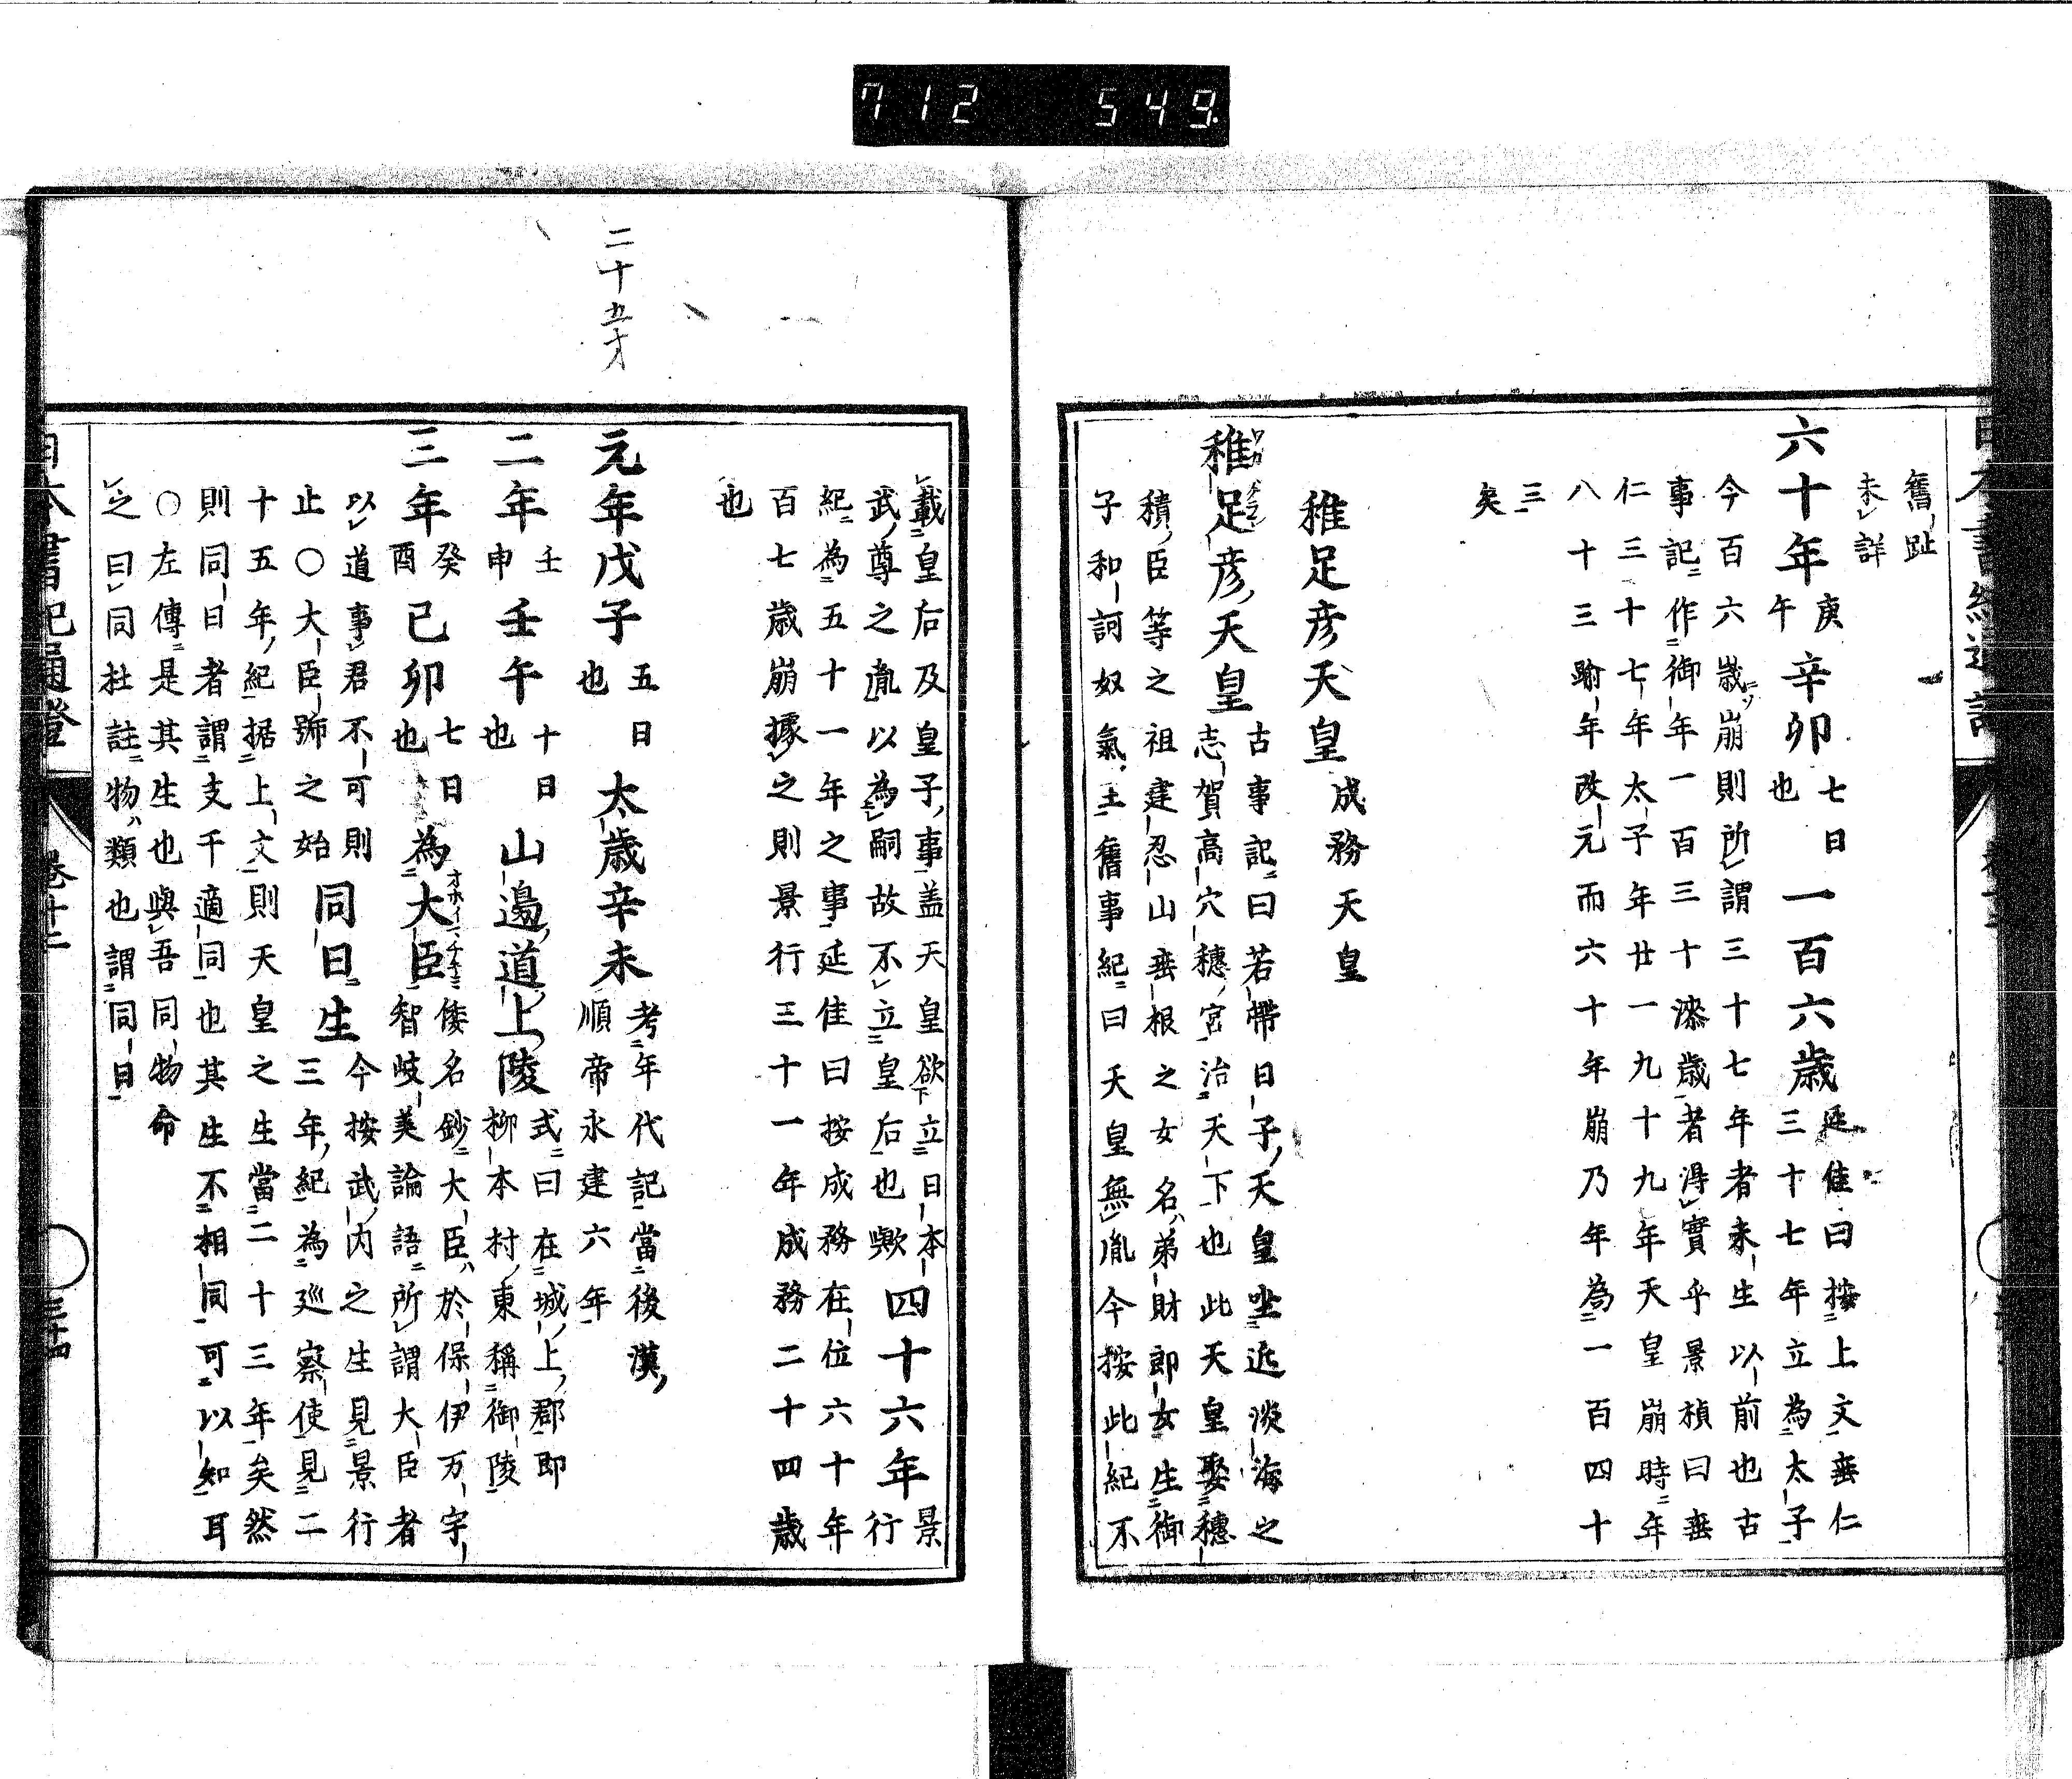 712 549.
舊趾
未詳
六十年庚午辛卯七日也一百六歳延佳曰按上文垂仁三十七年立為太子
今百六歳崩則所謂三十七年者未生以前也古
事記作御年一百三十漆歳者得實乎景楨曰垂
仁三十七年太子年廿一九十九年天皇崩時年
八十三踰年改元而六十年崩乃年為一百四十
三
矣
稚足彦天皇成務天皇
稚足彦天皇古事記曰若帶日子天皇坐近淡海之志賀高穴穗宮治天下也此天皇娶穗
積臣等之祖建忍山垂根之女名弟財郎女生御
子和訶奴氣王舊事紀曰天皇無胤今按此紀不
載皇后及皇子事盖天皇欲立日本
武尊之胤以為嗣故不立皇后也歟四十六年景行
紀為五十一年之事延佳曰按成務在位六十年
百七歳崩據之則景行三十一年成務二十四歳
也
二十五才
元年戊子五日也太歳辛未考年代記當後漢順帝永建六年
二年壬申壬午十日也山邊道上陵式曰在城上郡即柳本村東稱御陵
三年癸酉己卯七日也為大臣倭名鈔大臣於保伊万宇智岐美論語所謂大臣者
以道事君不可則止○大臣號之始同日生今按武内之生見景行三年紀為巡察使見二
十五年紀据上文則天皇之生當二十三年矣然
則同日者謂支干適同也其生不相同可以知耳
○左傳是其生也與吾同物命
之曰同杜註物類也謂同日
日本書紀通證
卷十二
三十四